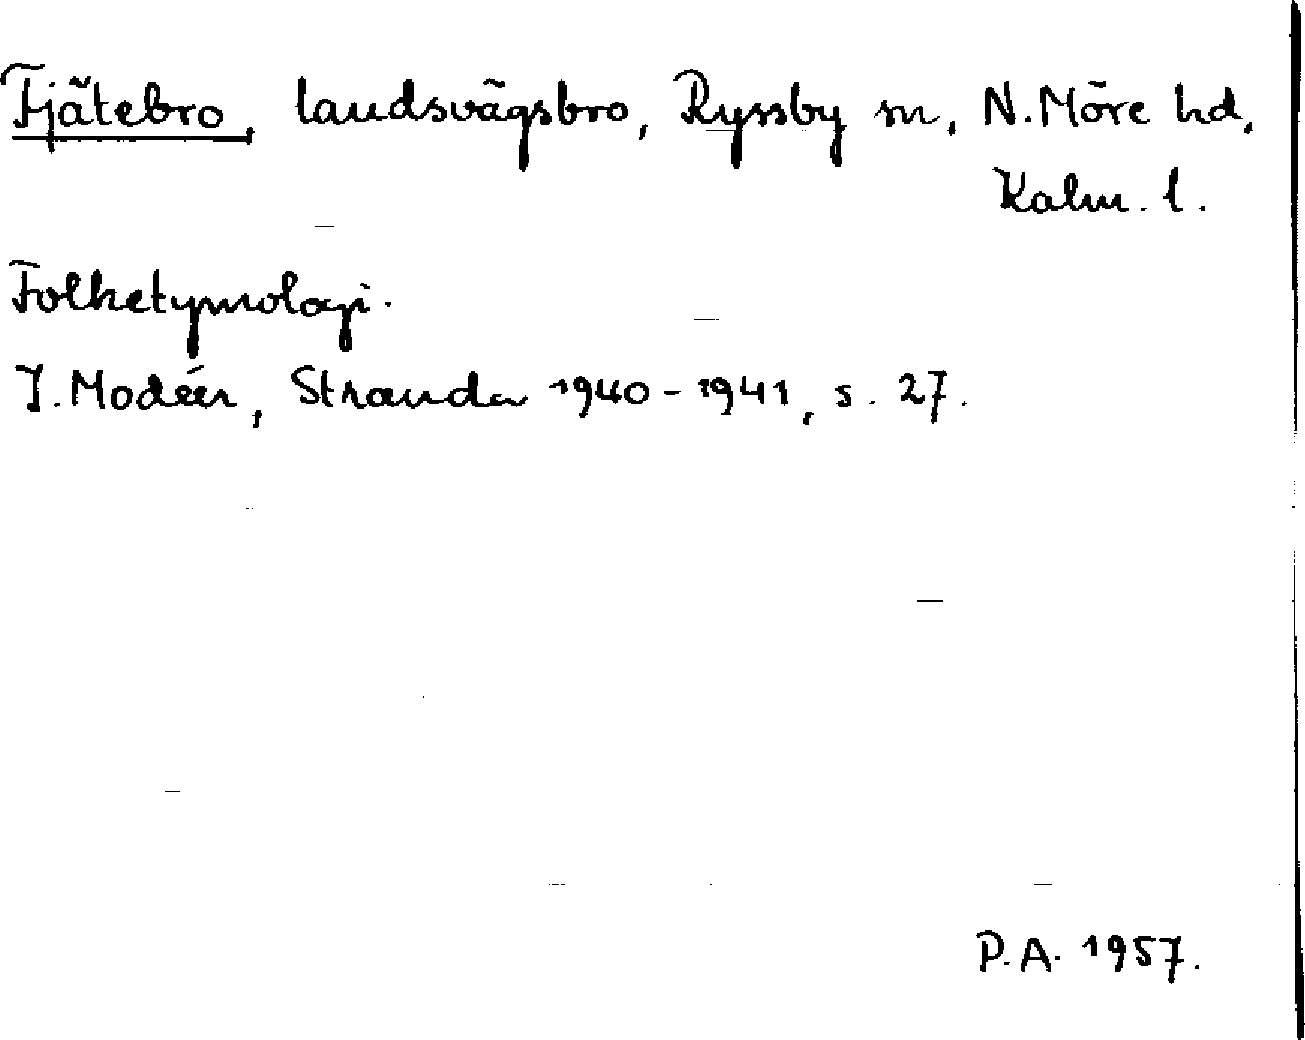 Fjätebro, landsvägsbro, Ryssby sn, N. Möre hd,
Kalm. l.
Folketymologi.
I. Modéer, Stranda 1940-1941, s. 27.
P.A. 1957.